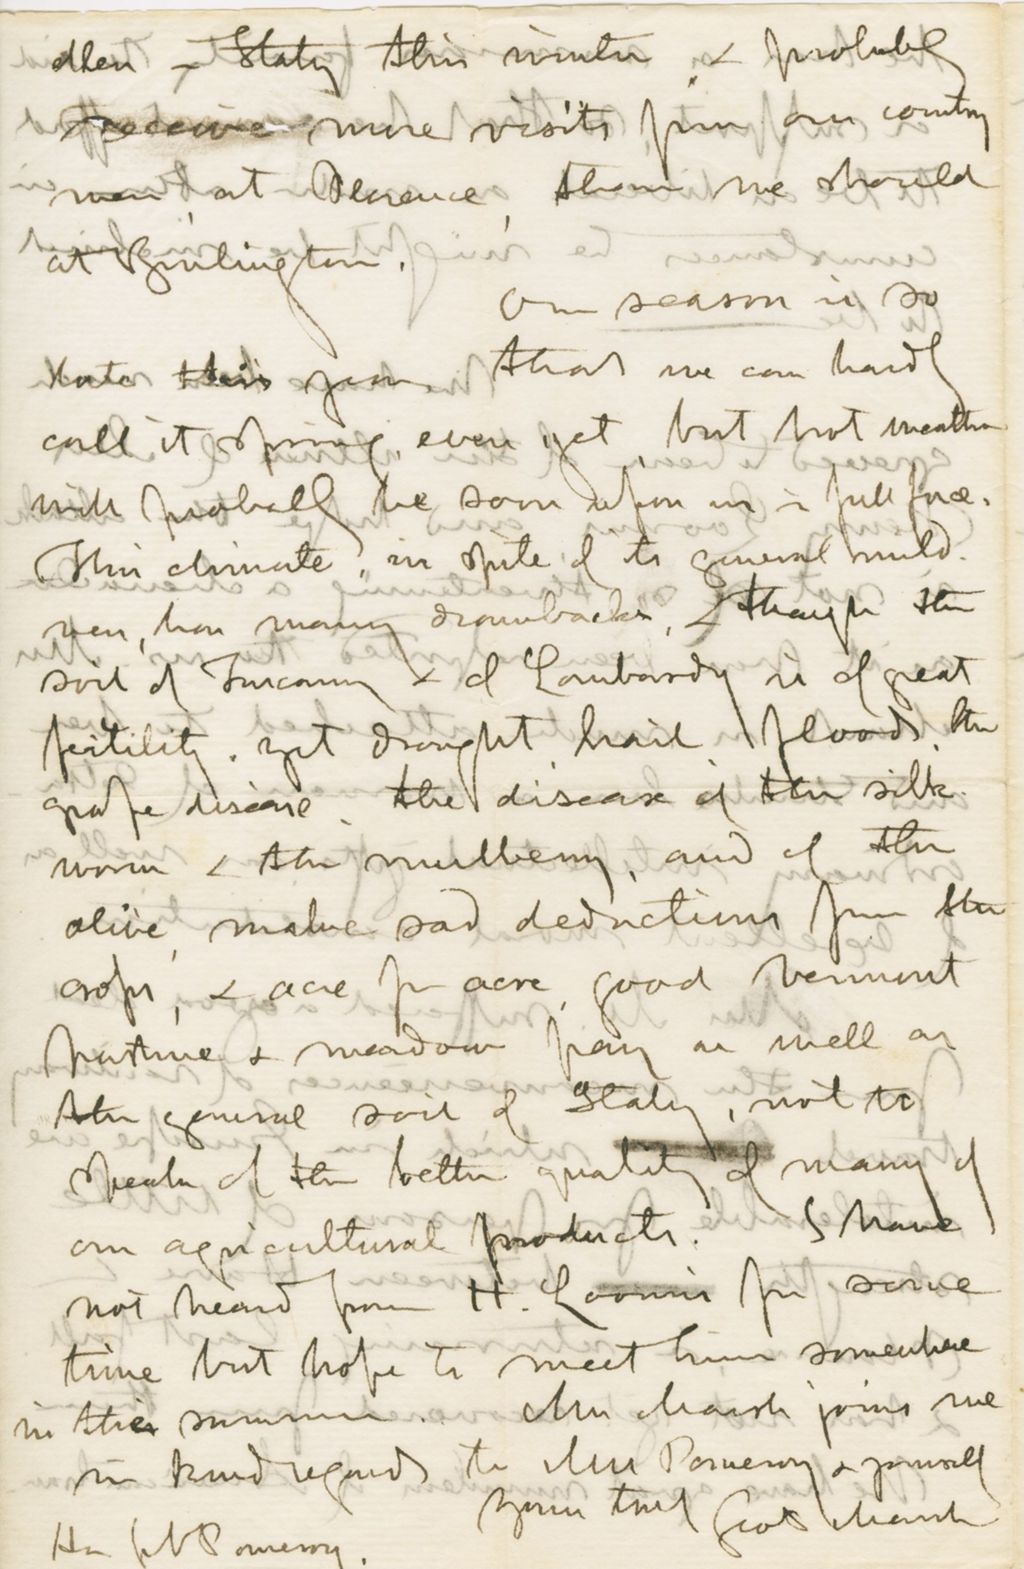 dlers in Italy this winter, & probably
receive more visits from our country
men, at Florence, than we should
at Burlington.
Our season is so
late this year that we can hardly
call it spring, even yet, but hot weather
will probably be soon upon us in full force.
This climate, in spite of its general mild-
ness, has many drawbacks, & though the
soil of Tuscany & of Lombardy is of great
fertility, yet drought, hail, floods, the
grape disease, the disease of the silk-
worm & the mulberry, and of the
olive, make sad deductions from the
crops, & acre for acre, good Vermont
pasture & meadow pay as well as
the general soil of Italy, not to
speak of the better quality of many of
our agricultural products. I have
not heard from H. Loomis for some
time but hope to meet him somewhere
in the summer. Mrs Marsh joins me
in kind regards to Mrs Pomeroy & yourself
Yours truly Geo P Marsh
Hon Jno N Pomeroy.